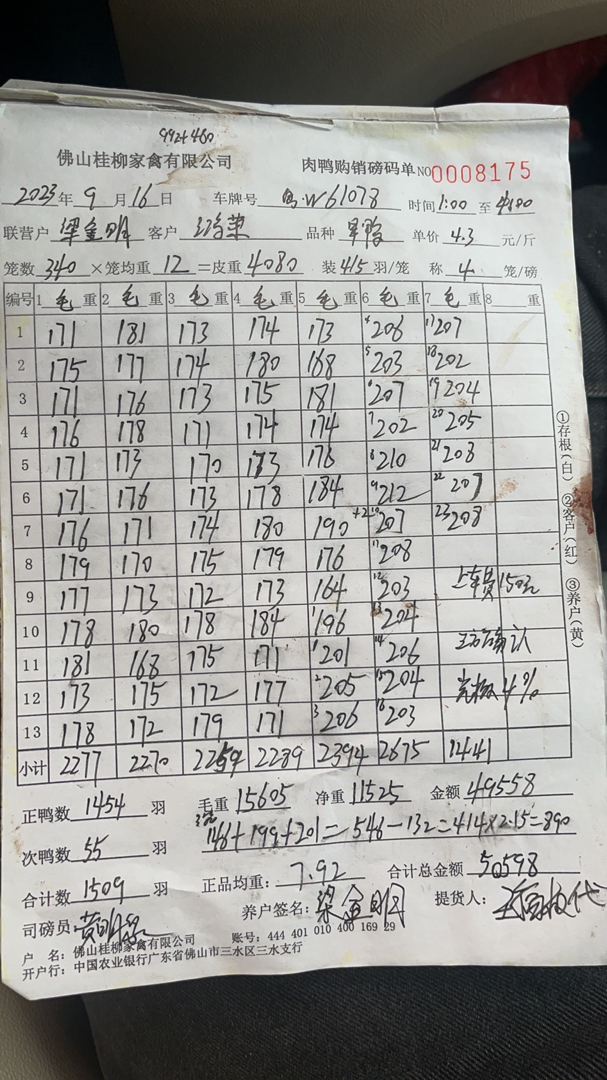 992+460
佛山桂柳家禽有限公司 肉鸭购销磅码单 NO 0008175
2023年 9月 16日 车牌号 粤·W61078 时间 1:00 至 4:00
联营户 梁金明 客户 品种 单价 4.3 元/斤
笼数 340 ×笼均重 12 =皮重 4080 装 4/5 羽/笼 称 4 笼/磅
编号 1 毛 重 2 毛 重 3 毛 重 4 毛 重 5 毛 重 6 毛 重 7 毛 重 8 重
1 171 181 173 174 173 4 206 17 207
2 175 177 174 180 168 5 203 18 202
3 171 176 173 175 181 6 207 19 204
4 176 178 171 174 174 7 202 20 205
5 171 173 170 173 176 8 210 21 208
6 171 176 173 178 184 9 212 22 207
7 176 171 174 180 190 +2 10 207 23 208
8 179 170 175 179 176 11 208
9 177 173 172 173 164 12 203 上车费150元
10 178 180 178 184 1 196 13 204
11 181 168 175 171 1 201 14 206 确认
12 173 175 172 177 2 205 15 204 4%
13 178 172 179 171 3 206 16 203
小计 2277 2270 2259 2289 2394 2675 1441
①存根(白) ②客户(红) ③养户(黄)
正鸭数 1454 羽 毛重 15605 净重 11525 金额 49558
次鸭数 55 羽 146+199+201=546-132=414×2.15=890
合计数 1509 羽 正品均重: 7.92 合计总金额 50598
司磅员: 养户签名: 梁金明 提货人:
户 名: 佛山桂柳家禽有限公司 账号: 444 401 010 400 169 29
开户行: 中国农业银行广东省佛山市三水区三水支行